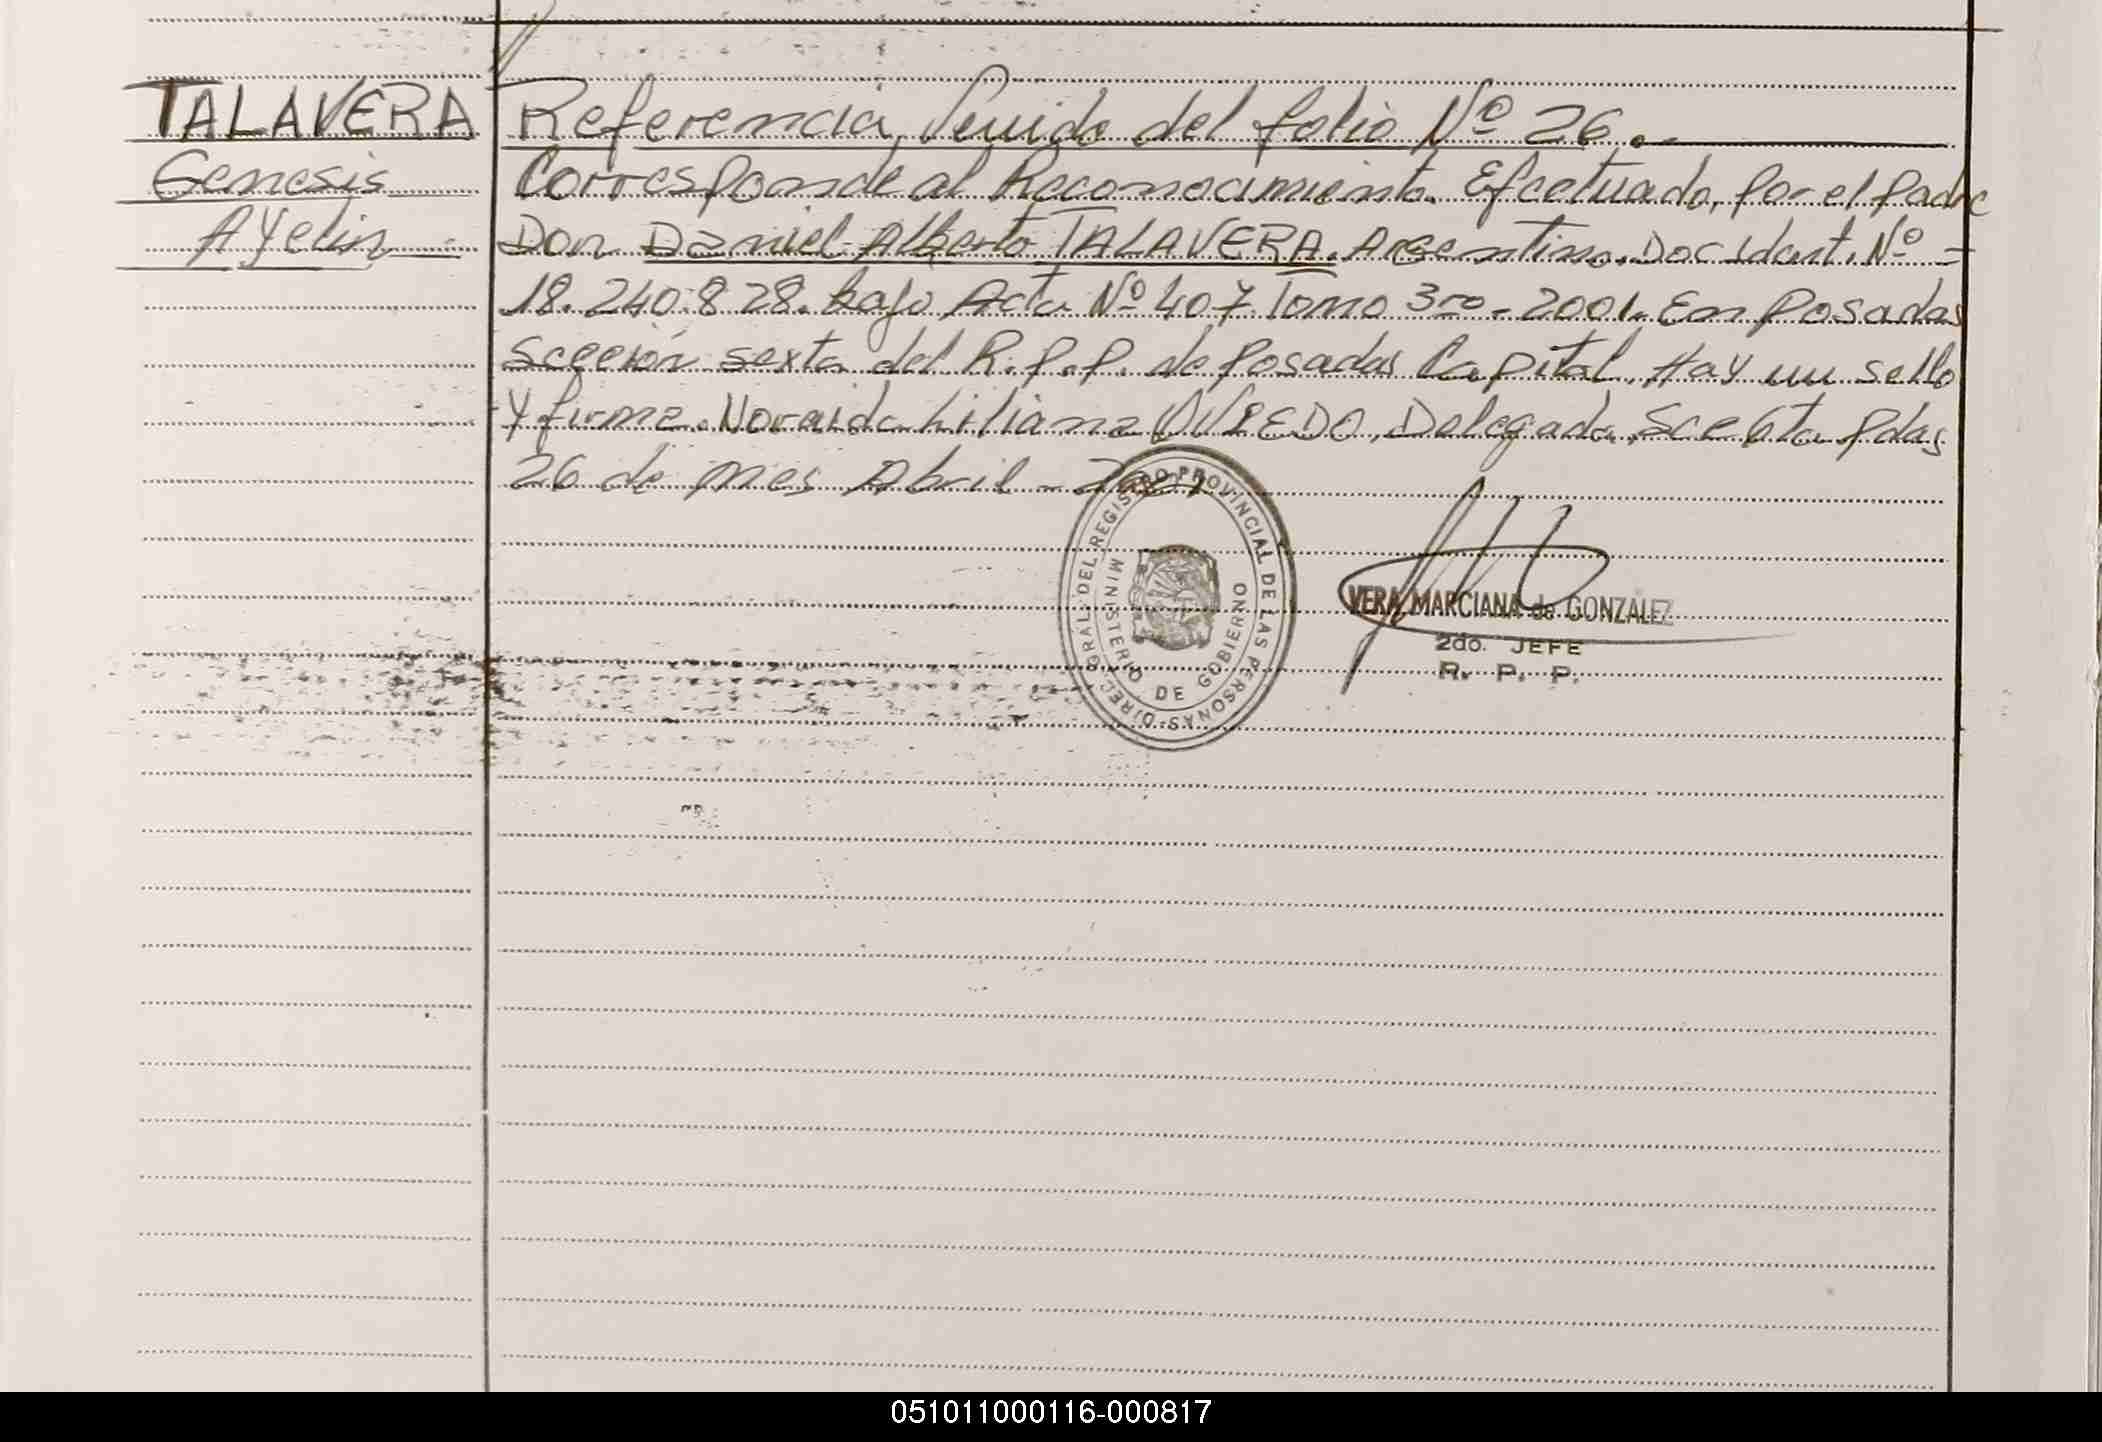 TALAVERA
Genesis
Ayelin
Referencia, Venida del folio Nº 26.
Corresponde al Reconocimiento. Efectuado, por el Padre
Don Daniel Alberto TALAVERA. Argentino. Doc. Ident. Nº =
18.240.828. bajo Acta Nº 407. Tomo 3ro - 2001. En Posadas
Sección sexta del R.P.P. de Posadas Capital. Hay un sello
y firma. Liliana Delegada, Sec 6ta Pdas
26 de mes Abril - 2001
DIREC. GRAL. DEL REGISTRO PROVINCIAL DE LAS PERSONAS
MINISTERIO DE GOBIERNO
VERA, MARCIANA de GONZALEZ
2do. JEFE
R. P. P.
051011000116-000817